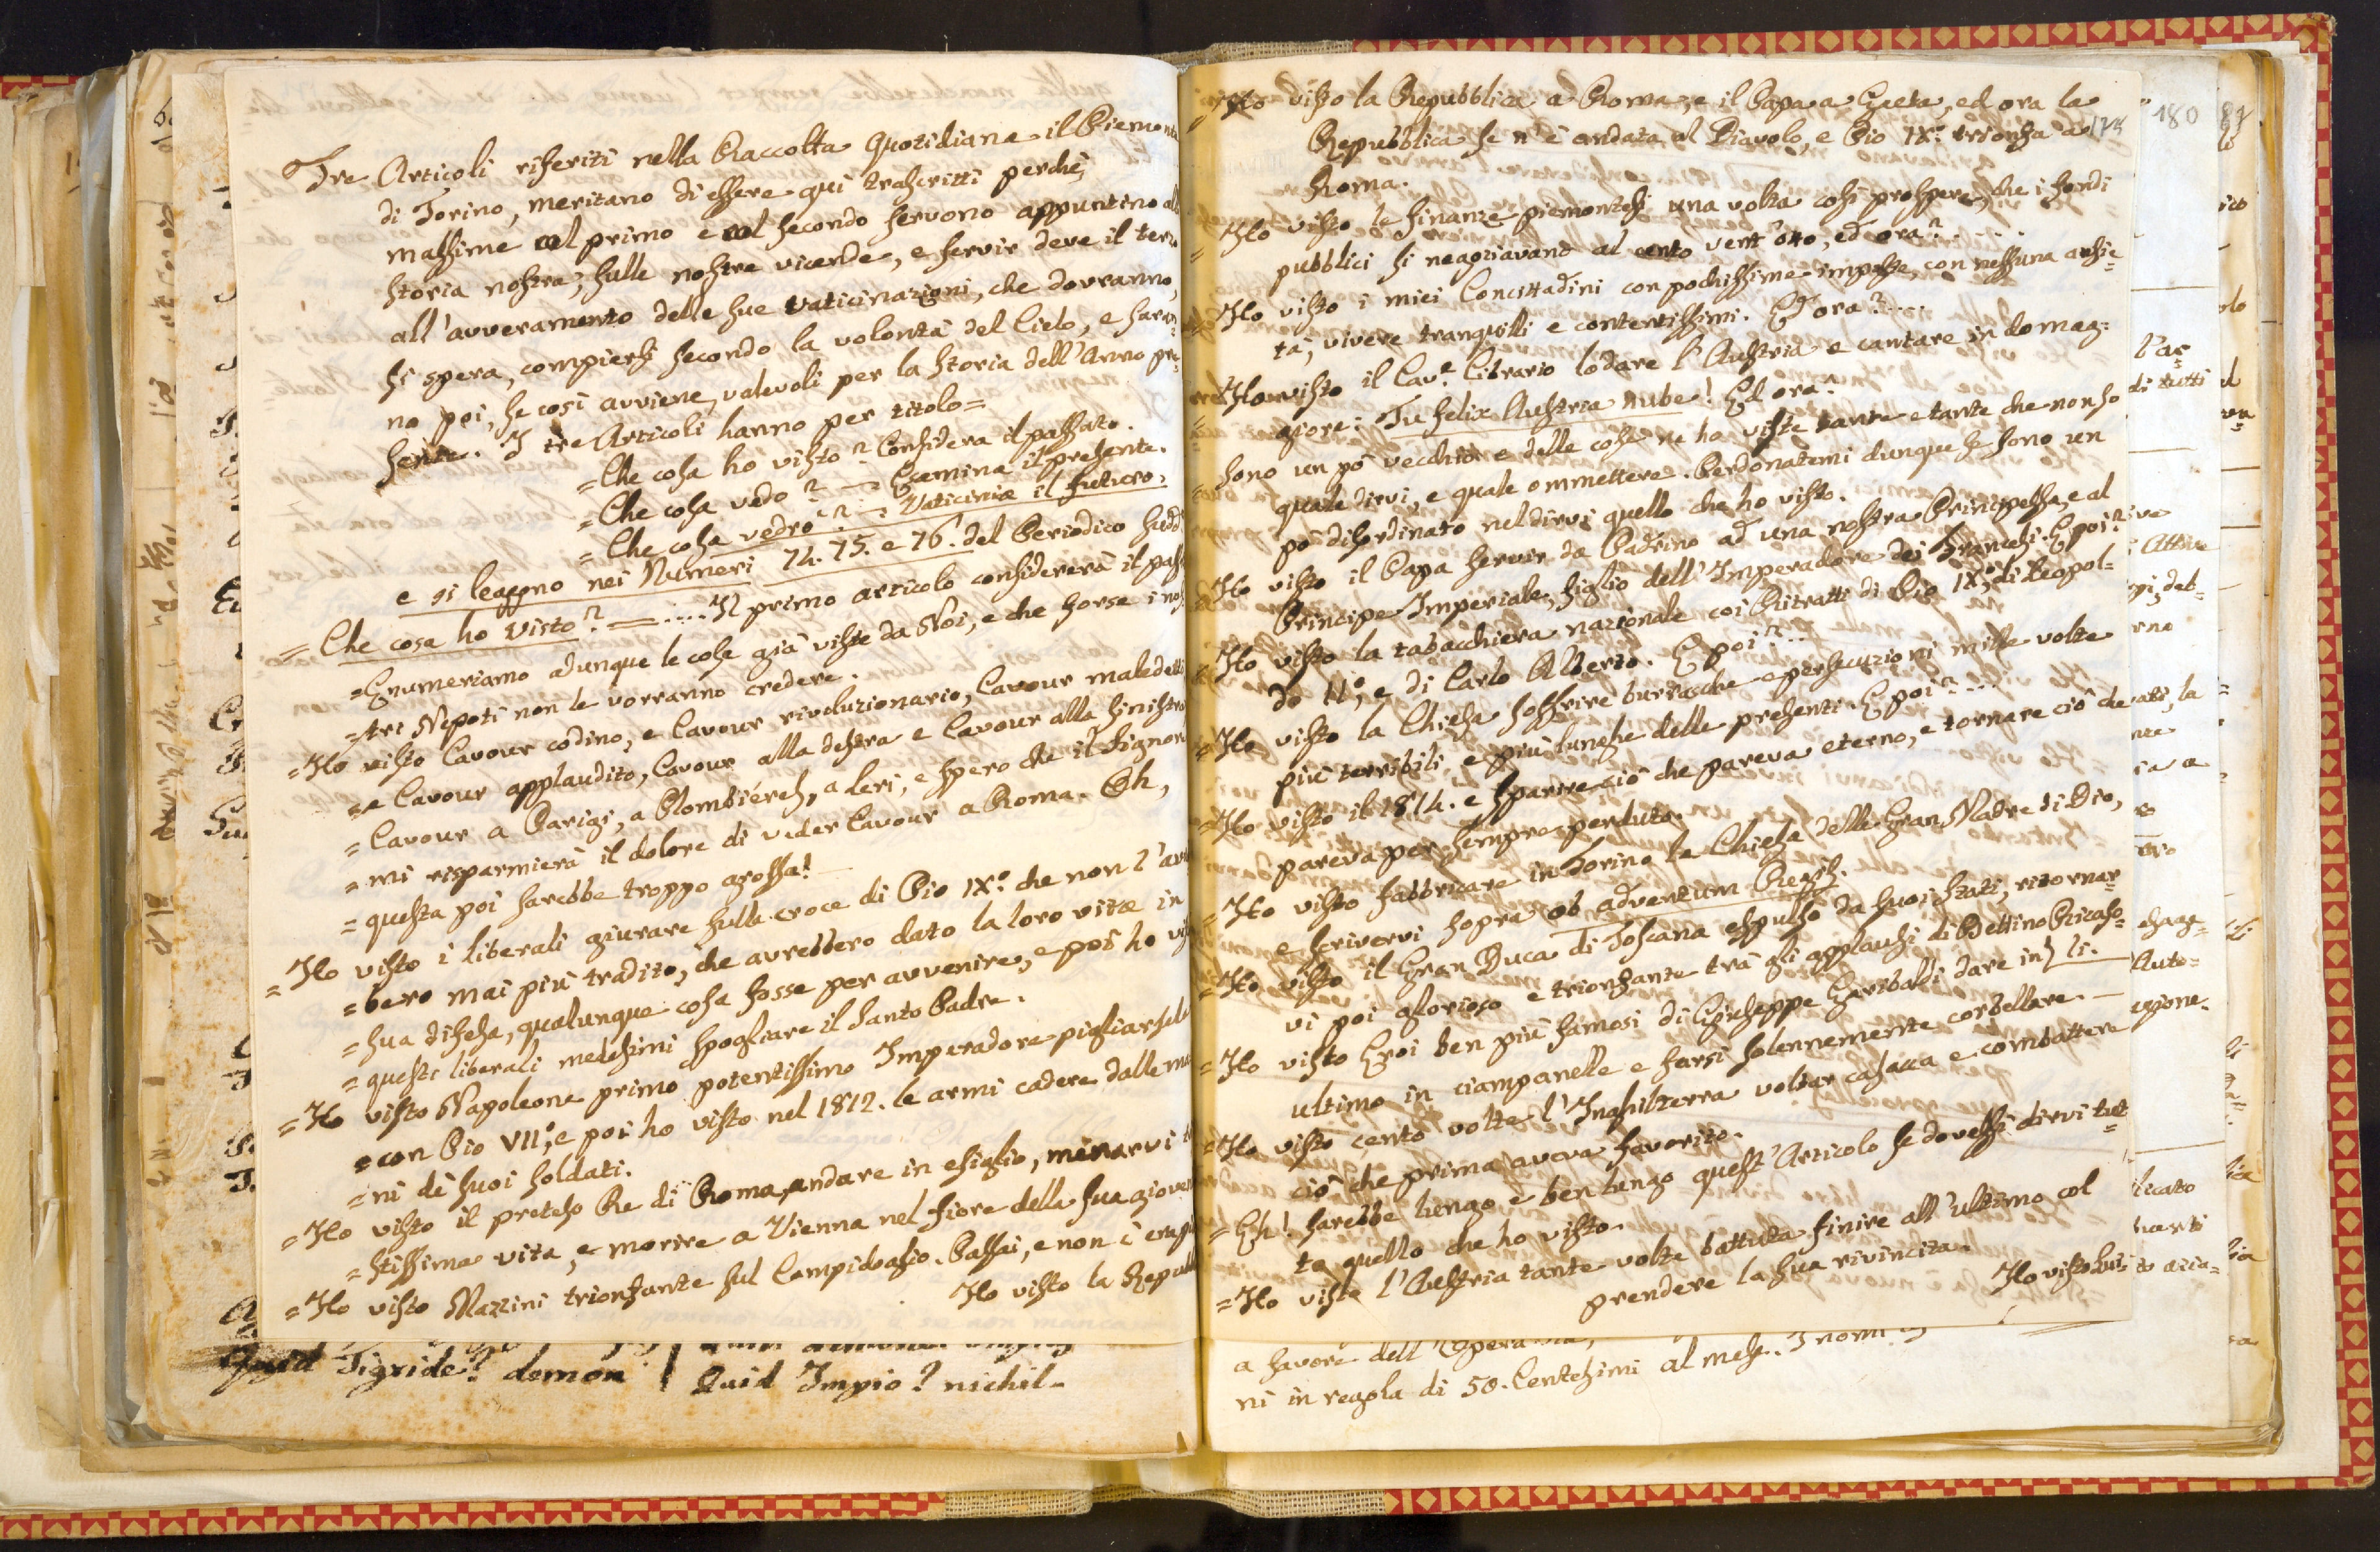 Tre Articoli riferiti nella Raccolta Quotidiana il Piemonte
di Torino, meritano di essere quì trascritti perchè
massime col primo e col secondo servono appuntino alla
storia nostra, sulle nostre vicende, e servir deve il terzo
all'avveramento delle sue vaticinazioni, che dovranno,
si spera, compiersi secondo la volontà del Cielo, e saran=
no poi, se così avviene, valevoli per la storia dell'Anno pre=
sente. I tre Articoli hanno per titolo=
=Che cosa ho visto? Considera il passato.
=Che cosa vedo? — Esamina il presente.
=Che cosa vedrò? — Vaticinia il futuro.
e si leggono nei Numeri 74. 75. e 76. del Periodico sudd
= Che cosa ho visto? = .... Il primo articolo considererà il pass
=Enumeriamo adunque le cose già viste da Noi, e che forse i nos
=tri Nepoti non le vorranno credere.
=Ho visto Cavour codino, e Cavour rivoluzionario, Cavour maledetto
=e Cavour applaudito, Cavour alla destra e Cavour alla sinistra
=Cavour a Parigi, a Plombières, a Leri, e spero che il Signore
=mi risparmierà il dolore di veder Cavour a Roma. Oh,
=questa poi sarebbe troppo grossa! —
= Ho visto i liberali giurare sulla croce di Pio IX.° che non l'av
=bero mai più tradito, che avrebbero dato la loro vita in
=sua difesa, qualunque cosa fosse per avvenire, e poi ho vis
=questi liberali medesimi spogliare il Santo Padre.
= Ho visto Napoleone primo potentissimo Imperadore pigliarsela
=con Pio VII°, e poi ho visto nel 1812. le armi cadere dalle ma
=ni dè suoi soldati.
= Ho visto il preteso Re di Roma, andare in esiglio, menarvi t
=stissima vita, e morire a Vienna nel fiore della sua gioven
= Ho visto Mazzini trionfante sul Campidoglio. Passai, e non è
Ho visto la Repubb
Quid Tigride? demon | Quid Impio? nichil.
Ho visto la Repubblica a Roma, e il Papa a Gaeta, ed ora la
Repubblica se n'è andata al Diavolo, e Pio IX.° trionfa a 174 180
Roma.
= Ho visto le finanze piemontesi una volta così prospere, che i fondi
pubblici si neagziavano al cento vent'otto, ed ora? . . . .
Ho visto i miei Concittadini con pochissime imposte, con nessuna ansie=
tà, vivere tranquilli e contentissimi. Ed ora? ....
Ho visto il Cav.e Cibrario lodare l'Austria e cantare in do mag=
giore: Tu felix Austria nube! Ed ora?
= Sono un pò vecchio e delle cose ne ho viste tante e tante che non so
quale dirvi, e quale ommettere. Perdonatemi dunque se sono un
pò disordinato nel dirvi quello che ho visto.
Ho visto il Papa servir da Padrino ad una nostra Principessa, e al
Principe Imperiale, figlio dell'Imperadore dei Francesi. E poi?
Ho visto la tabacchiera nazionale coi Ritratti di Pio IX°, di Leopol=
do II°, e di Carlo Alberto. E poi? ...
Ho visto la Chiesa soffrire burrasche e persecuzioni mille volte
più terribili, e più lunghe delle presenti. E poi? ...
=Ho visto il 1814. e sparire ciò che pareva eterno, e tornare ciò che
pareva per sempre perduto.
= Ho visto fabbricare in Torino la Chiesa della Gran Madre di Dio,
e scrivervi sopra ob adventum Regis.
= Ho visto il Gran Duca di Toscana espulso da suoi stati, ritornar
vi poi glorioso e trionfante trà gli applausi di Bettino Ricaso=
li.
= Ho visto Eroi ben più famosi di Giuseppe Garibaldi dare in
ultimo in ciampanelle e farsi solennemente corbellare. —
=Ho visto cento volte l'Inghilterra voltar casacca e combattere
ciò che prima aveva favorito.
= Eh! Sarebbe lungo e ben lungo quest'Articolo se dovessi dirvi tut=
to quello che ho visto.
=Ho visto l'Austria tante volte battuta finire all'ultimo col
prendere la sua rivincita.
Ho visto Lui=
a favore dell'Opera
ni in regola di 50. Centesimi al mese. I nomi